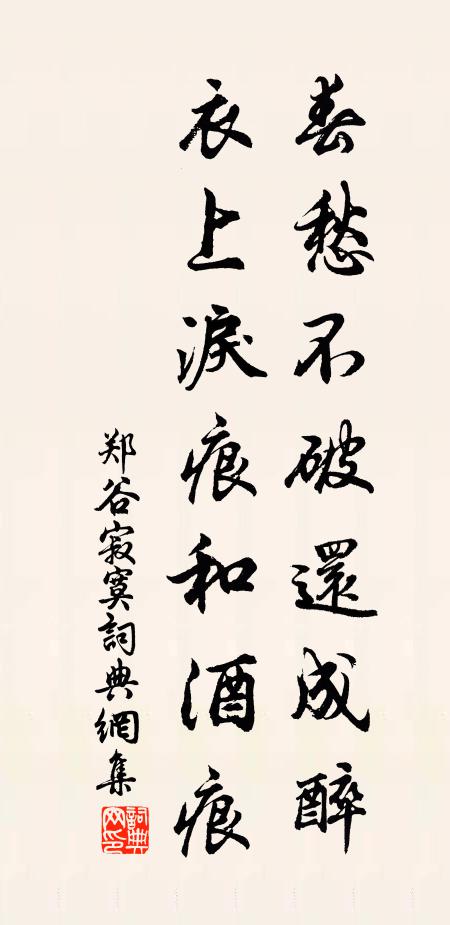 春愁不破還成醉
衣上淚痕和酒痕
郑谷寂寞詞典網集
詞典网印